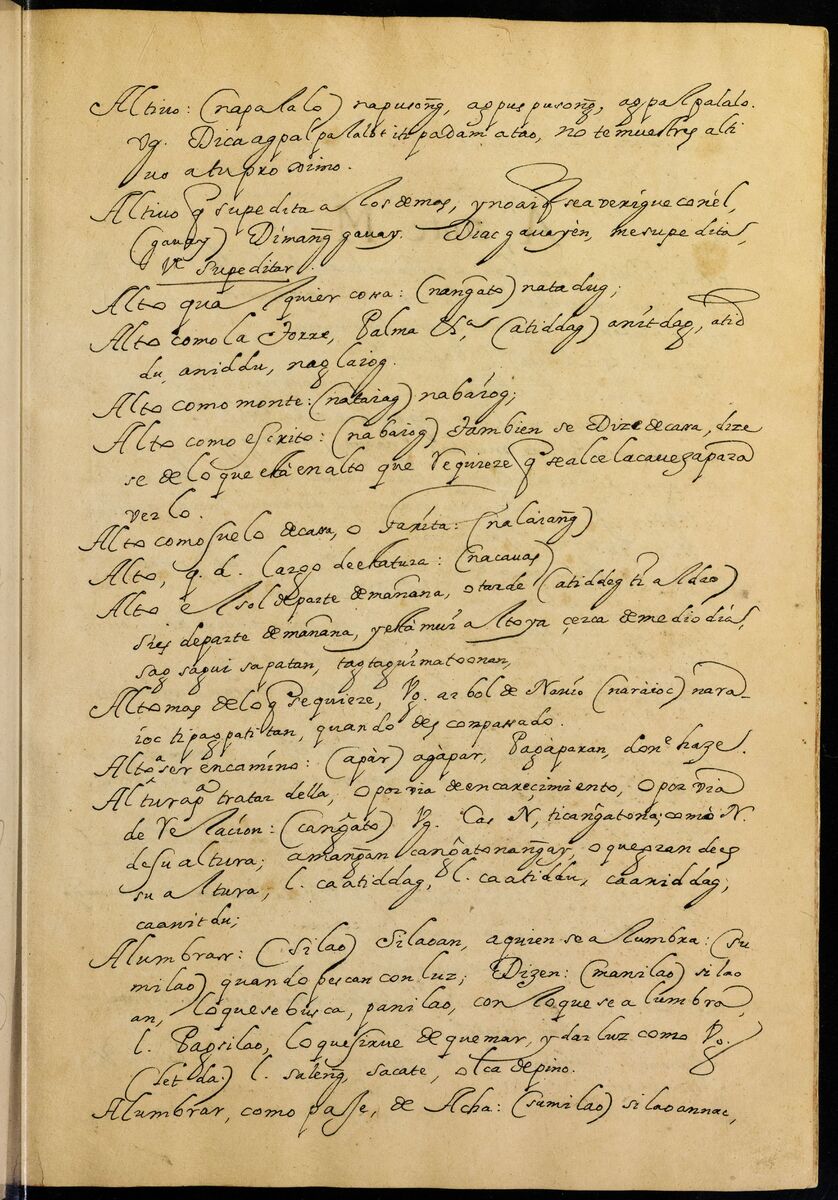 Altiuo: (napalalo) napusong̃, agpuspusong̃, agpalpalalo.
Vg. Dica agpalpalalot iti padam atao, no te muestres alti
uo a tu proximo.
Altiuo q̃ supedita a los demas, y no ai q̃ se auerigue con él,
(gauay) Dimang̃ gauay. Diac gauayèn, me supeditas,
Ve Supeditar.
Alto qualquier cossa: (nang̃ato) natadug;
Alto como la Torre, Palma &ª, (atiddag) anitdag, atid
du, aniddu, naglaiog.
Alto como monte: (nataiag) nabaiog;
Alto como escrito: (nabaiog) tambien se Dize de cara, dize
se de lo que està en alto que requiere q̃ se alce la caueza para
verlo.
Alto como suelo de casa, o Tarita: (nalàiang̃)
Alto, q. d. largo de estatura: (nacauas)
Alto el sol de parte de mañana, o tarde (atiddeg ti aldao)
si es de parte de mañana, y està mui alto ya çerca de medio dia,
sag sagui sapatan, tagtaguimatoonan,
Alto mas de lo q̃ se quiere, Vg. arbol de Nauio (naràioc) nara-
ioc ti pagpatitan, quando descompassado.
Altoª ser encamino: (apàr) agàpar, Pagàparan, donᵉ haze.
Alturapª tratar della, o por via de encareçimiento, o por via
de relaçion: (cang̃ato) Vg. Cas N, ti cang̃atona; como N.
de su altura; amang̃an cang̃atonang̃ay, o que gran de es
su altura, l. caatiddag, l. caatiddu, caaniddag;
caanitdu;
Alumbrar: (silao) Silaoan, a quien se alumbra: (su
milao) quando pescan con luz; Dizen: (manilao) silao
an, lo que se busca, panilao, con lo que se alumbra,
l. Pagsilao, lo que sirue de quemar, y dar luz como Vg.
(letda.) l. suleng̃, sacate, o tea de pino.
Alumbrar, como passe, de Acha: (sumilao) silaoannac,